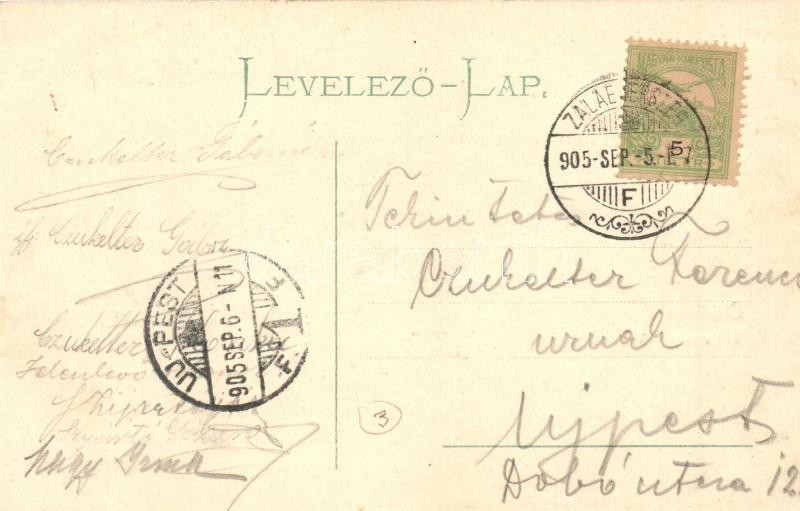 LEVELEZŐ-LAP.
MAGYAR KIR. POSTA
5
ZALAEGERSZEG
905-SEP.-5.
F
Czukelter Gáborné
ifj. Czukelter Gábor
Czukelter
Nagy Irma
UJPEST 1
905 SEP. 6 - N 11
F
3
Tekintetes
Czukelter Ferenc
urnak
Ujpest
Dobó utca 12.